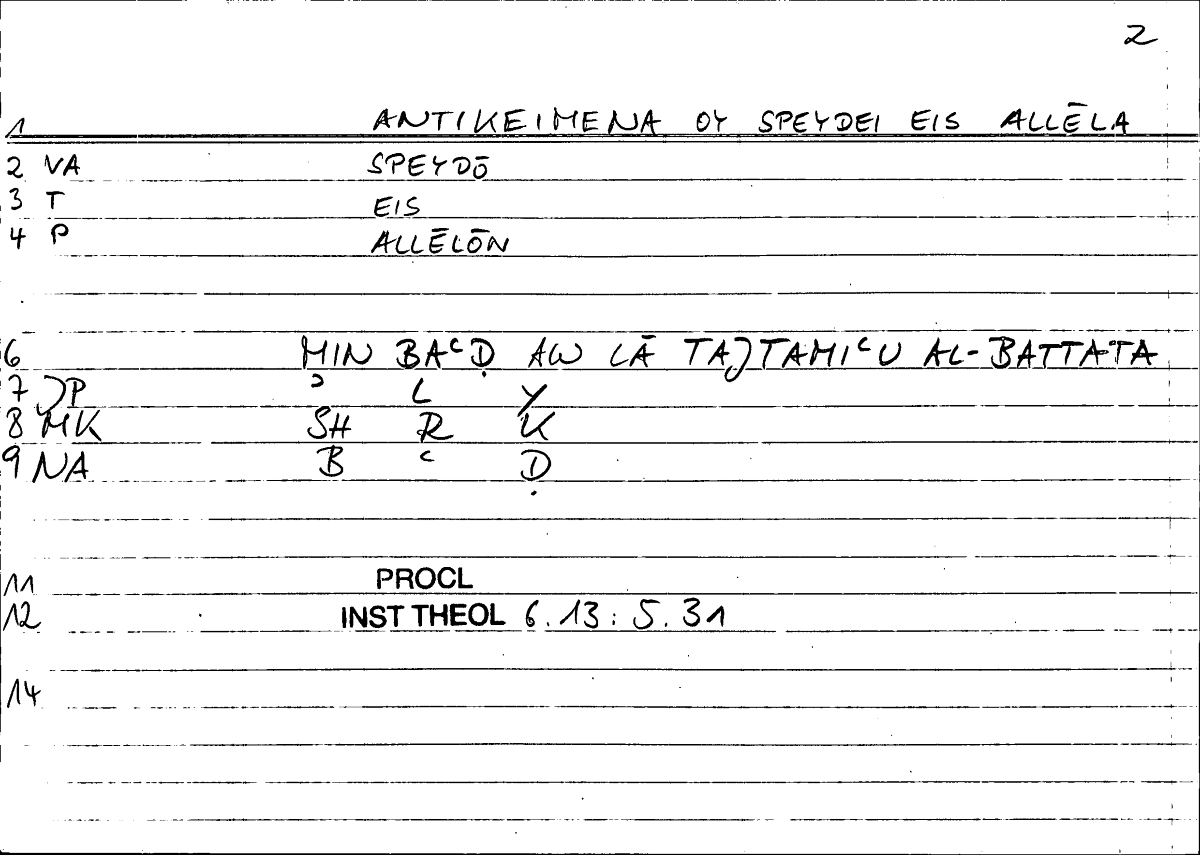 2
1 ANTIKEIMENA OY SPEYDEI EIS ALLĒLA
2 VA SPEYDŌ
3 T EIS
4 P ALLĒLŌN
6 MIN BAʿḌ AW LĀ TAJTAMIʿU AL-BATTATA
7 JP ʾ L Y
8 MK SH R K
9 NA B ʿ Ḍ
11 PROCL
12 INST THEOL 6.13: 5.31
14